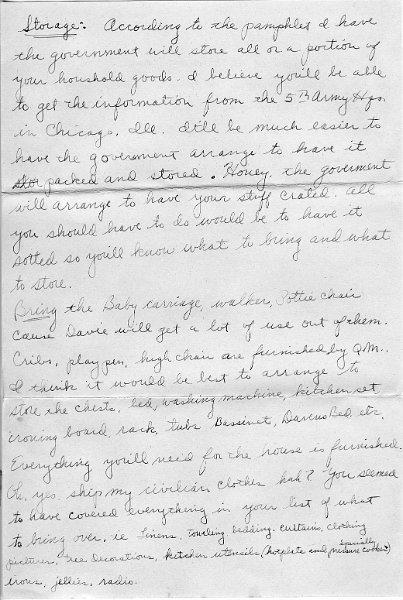 Storage: According to the pamphlet I have
the government will store all or a portion of
your houshold goods. I believe you'll be able
to get the information from the 5th Army Hqs.
in Chicago, Ill. It'll be much easier to
have the goverement arrange to have it
packed and stored. Honey, the goverment
will arrange to have your stuff crated. All
you should have to do would be to have it
sotted so you'll know what to bring and what
to store.
Bring the Baby carriage, walker, Pottie chair
cause Davie will get a lot of use out of them.
Cribs, play pen, high chair are furnished by Q.M..
I think it would be best to arrange to
store the chests, bed, washing machine, kitchen set,
ironing board, rack, tubs Bassinet, Daven Bed etc,
Everything you'll need for the house is furnished.
Oh, yes. ship my civilian clothes huh? You seemed
to have covered everything in your list of what
to bring over, ie Linens, toweling, bedding, curtains, clothing
pictures, Decorations, kitchen utensils (hotplate and specially pressure cooker)
irons, jellies, radio.